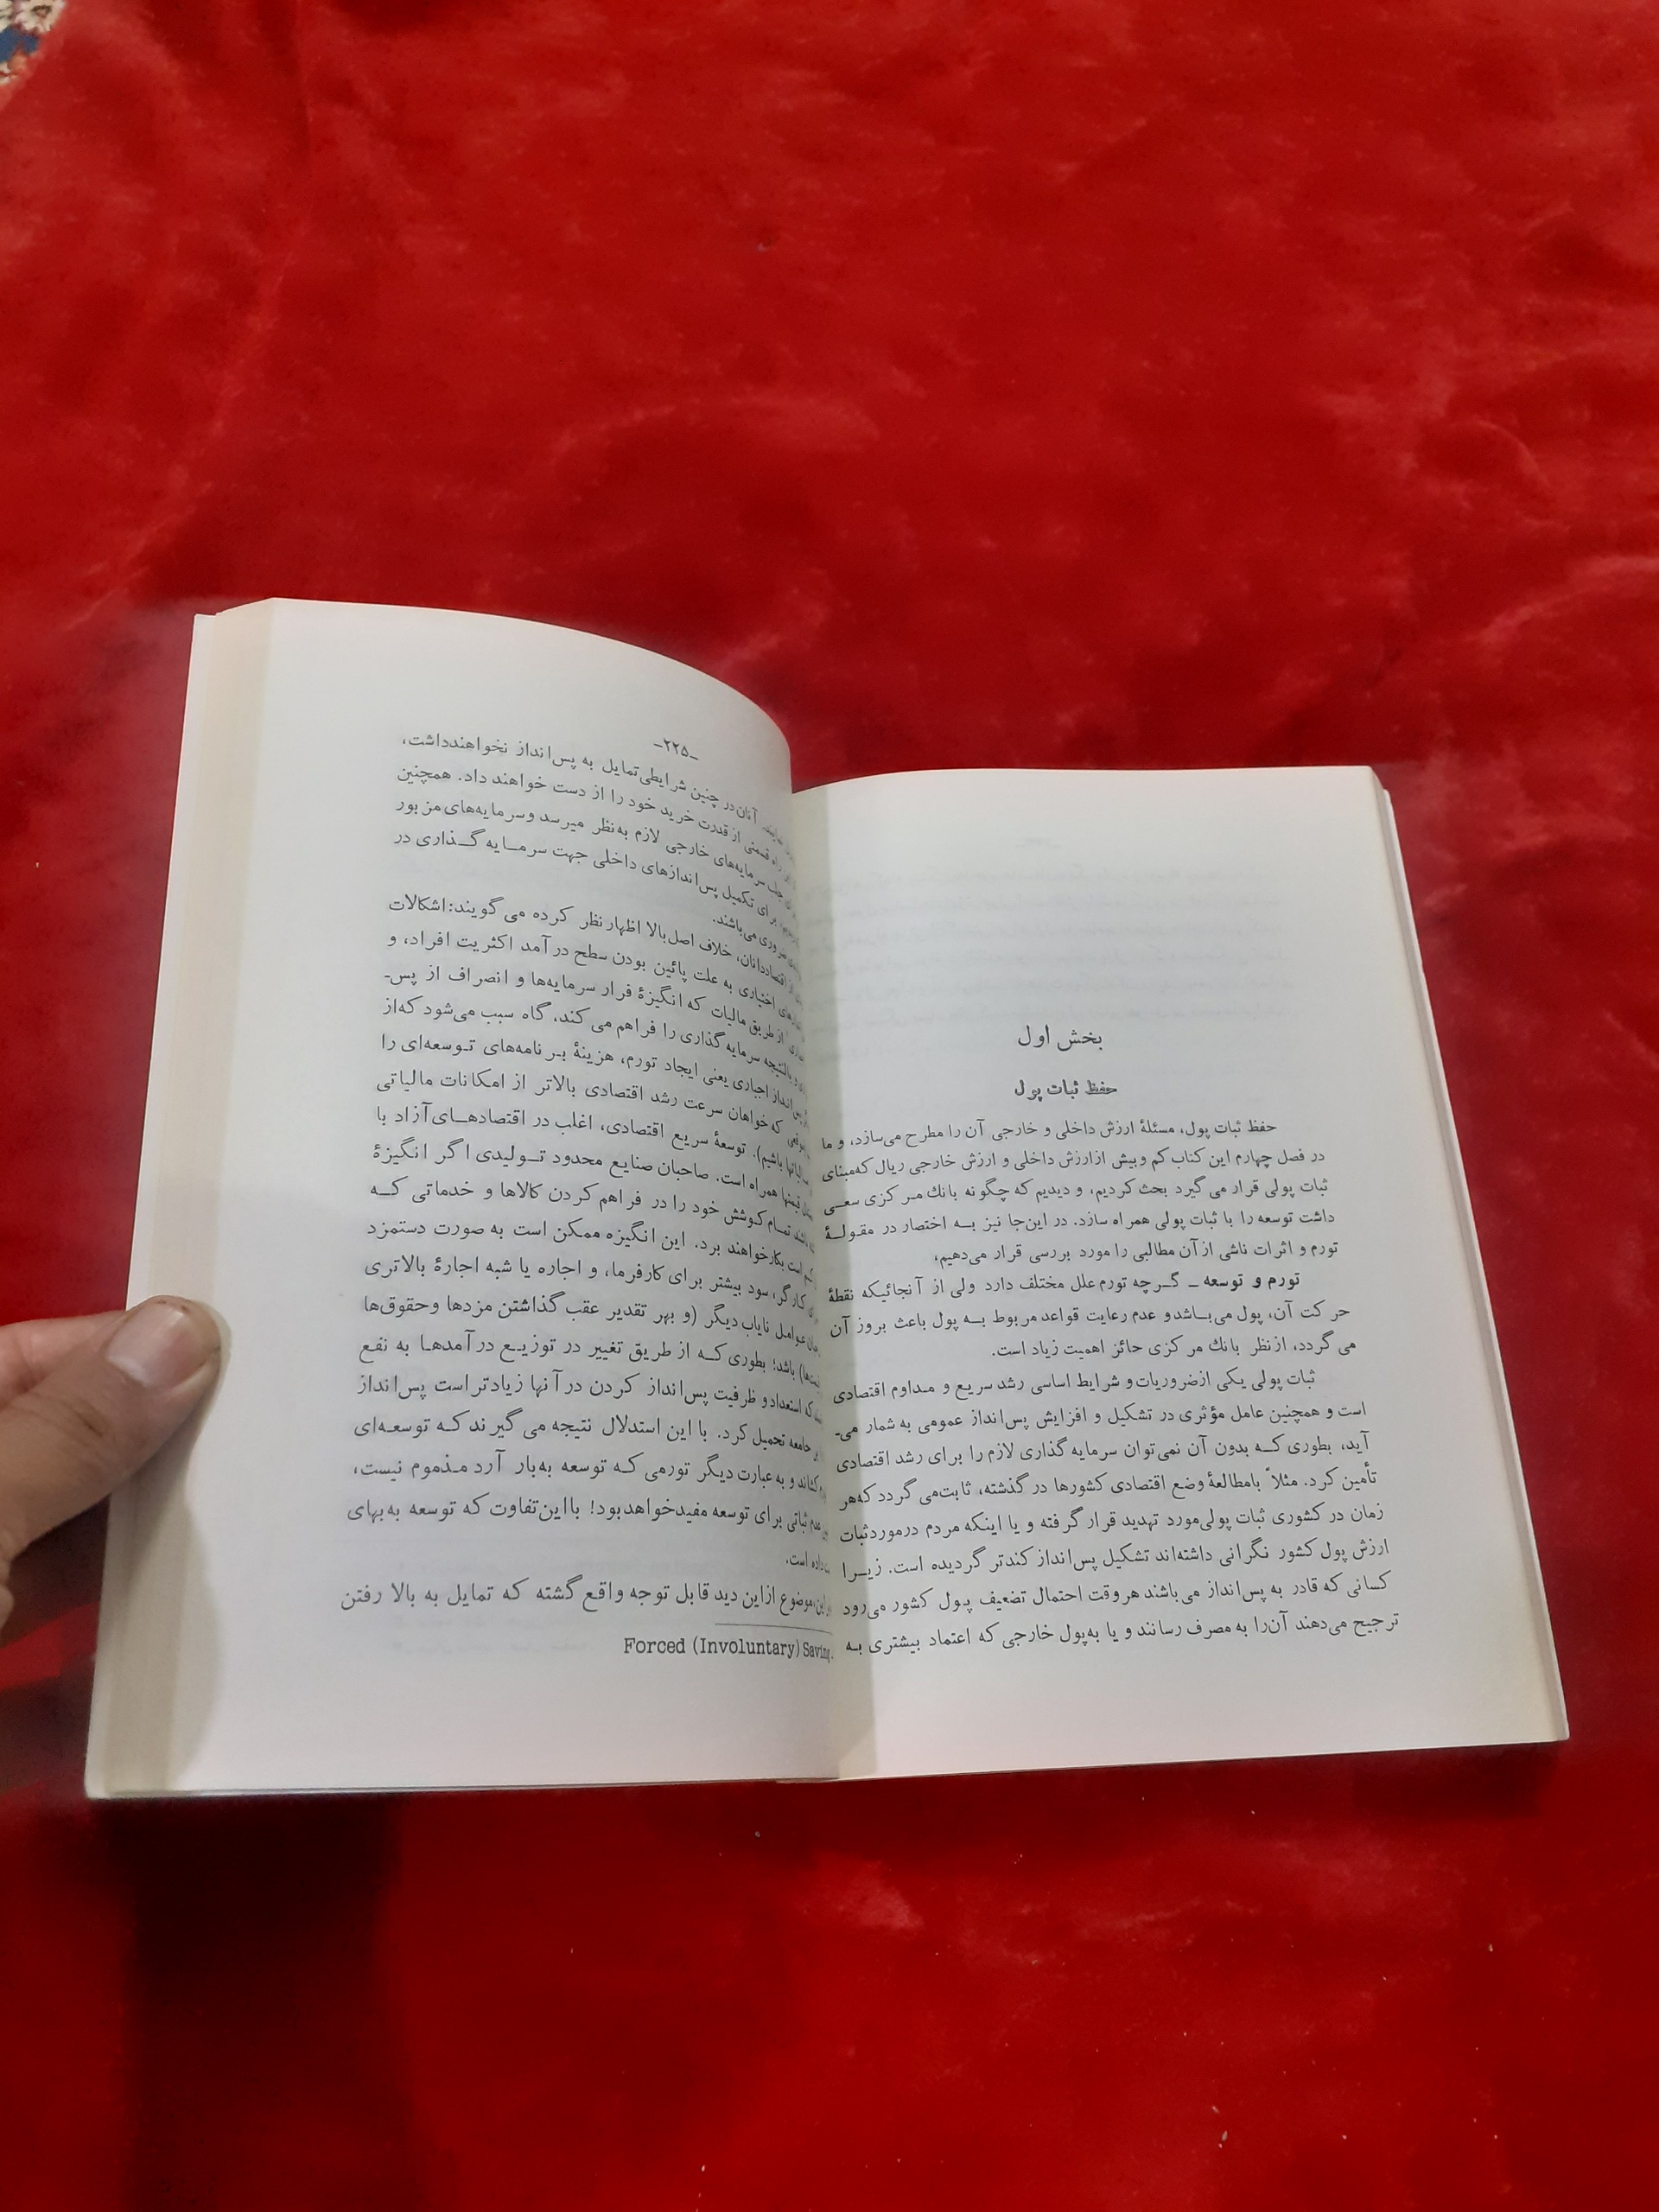 بخش اول
حفظ ثبات پول
حفظ ثبات پول، مسئلهٔ ارزش داخلی و خارجی آن را مطرح می‌سازد، و ما
در فصل چهارم این کتاب کم وبیش ازارزش داخلی و ارزش خارجی ریال که‌مبنای
ثبات پولی قرار می گیرد بحث کردیم، و دیدیم که چگونه بانك مرکزی سعی
داشت توسعه را با ثبات پولی همراه سازد. در این‌جا نیز به اختصار در مقولهٔ
تورم و اثرات ناشی ازآن مطالبی را مورد بررسی قرار می‌دهیم،
تورم و توسعه ـ گرچه تورم علل مختلف دارد ولی از آنجائیکه نقطهٔ
حرکت آن، پول می‌باشدو عدم رعایت قواعد مربوط به پول باعث بروز آن
می گردد، ازنظر بانك مرکزی حائز اهمیت زیاد است.
ثبات پولی یکی ازضروریات و شرایط اساسی رشد سریع و مداوم اقتصادی
است و همچنین عامل مؤثری در تشکیل و افزایش پس‌انداز عمومی به شمار می‌ـ
آید، بطوری که بدون آن نمی‌توان سرمایه گذاری لازم را برای رشد اقتصادی
تأمین کرد. مثلاً بامطالعهٔ وضع اقتصادی کشورها در گذشته، ثابت‌می گردد که‌هر
زمان در کشوری ثبات پولی‌مورد تهدید قرار گرفته و یا اینکه مردم درموردثبات
ارزش پول کشور نگرانی داشته‌اند تشکیل پس‌انداز کندتر گردیده است. زیرا
کسانی که قادر به پس‌انداز می‌باشند هروقت احتمال تضعیف پول کشور می‌رود
ترجیح می‌دهند آن‌را به مصرف رسانند و یا به‌پول خارجی که اعتماد بیشتری به
ـ۲۲۵ـ
آنان در چنین شرایطی تمایل به پس‌انداز نخواهندداشت،
راه قسمتی از قدرت خرید خود را از دست خواهند داد. همچنین
جلب سرمایه‌های خارجی لازم به‌نظر میرسد وسرمایه‌های مزبور
برای تکمیل پس‌اندازهای داخلی جهت سرمایه گذاری در
ضروری می‌باشند.
از اقتصاددانان، خلاف اصل‌بالا اظهارنظر کرده می گویند: اشکالات
اختیاری به علت پائین بودن سطح درآمد اکثریت افراد، و
از طریق مالیات که انگیزهٔ فرار سرمایه‌ها و انصراف از پس‌ـ
و بالنتیجه سرمایه گذاری را فراهم می کند، گاه سبب می‌شود که‌از
پس‌انداز اجباری یعنی ایجاد تورم، هزینهٔ برنامه‌های توسعه‌ای را
که خواهان سرعت رشد اقتصادی بالاتر از امکانات مالیاتی
باشیم). توسعهٔ سریع اقتصادی، اغلب در اقتصادهای‌آزاد با
قیمتها همراه است. صاحبان صنایع محدود تولیدی اگر انگیزهٔ
باشد تمام کوشش خود را در فراهم کردن کالاها و خدماتی که
است بکارخواهند برد. این انگیزه ممکن است به صورت دستمزد
کارگر، سود بیشتر برای کارفرما، و اجاره یا شبه اجارهٔ بالاتری
عوامل نایاب دیگر (و بهر تقدیر عقب گذاشتن مزدها وحقوق‌ها
باشد؛ بطوری که از طریق تغییر در توزیع درآمدها به نفع
که استعداد و ظرفیت پس‌انداز کردن در آنها زیادتراست پس‌انداز
جامعه تحمیل کرد. با این استدلال نتیجه می گیرند که توسعه‌ای
و به عبارت دیگر تورمی که توسعه به‌بار آرد مذموم نیست،
عدم ثباتی برای توسعه مفیدخواهدبود! بااین‌تفاوت که توسعه به‌بهای
است.
موضوع ازاین دید قابل توجه واقع گشته که تمایل به بالا رفتن
Forced (Involuntary) Saving